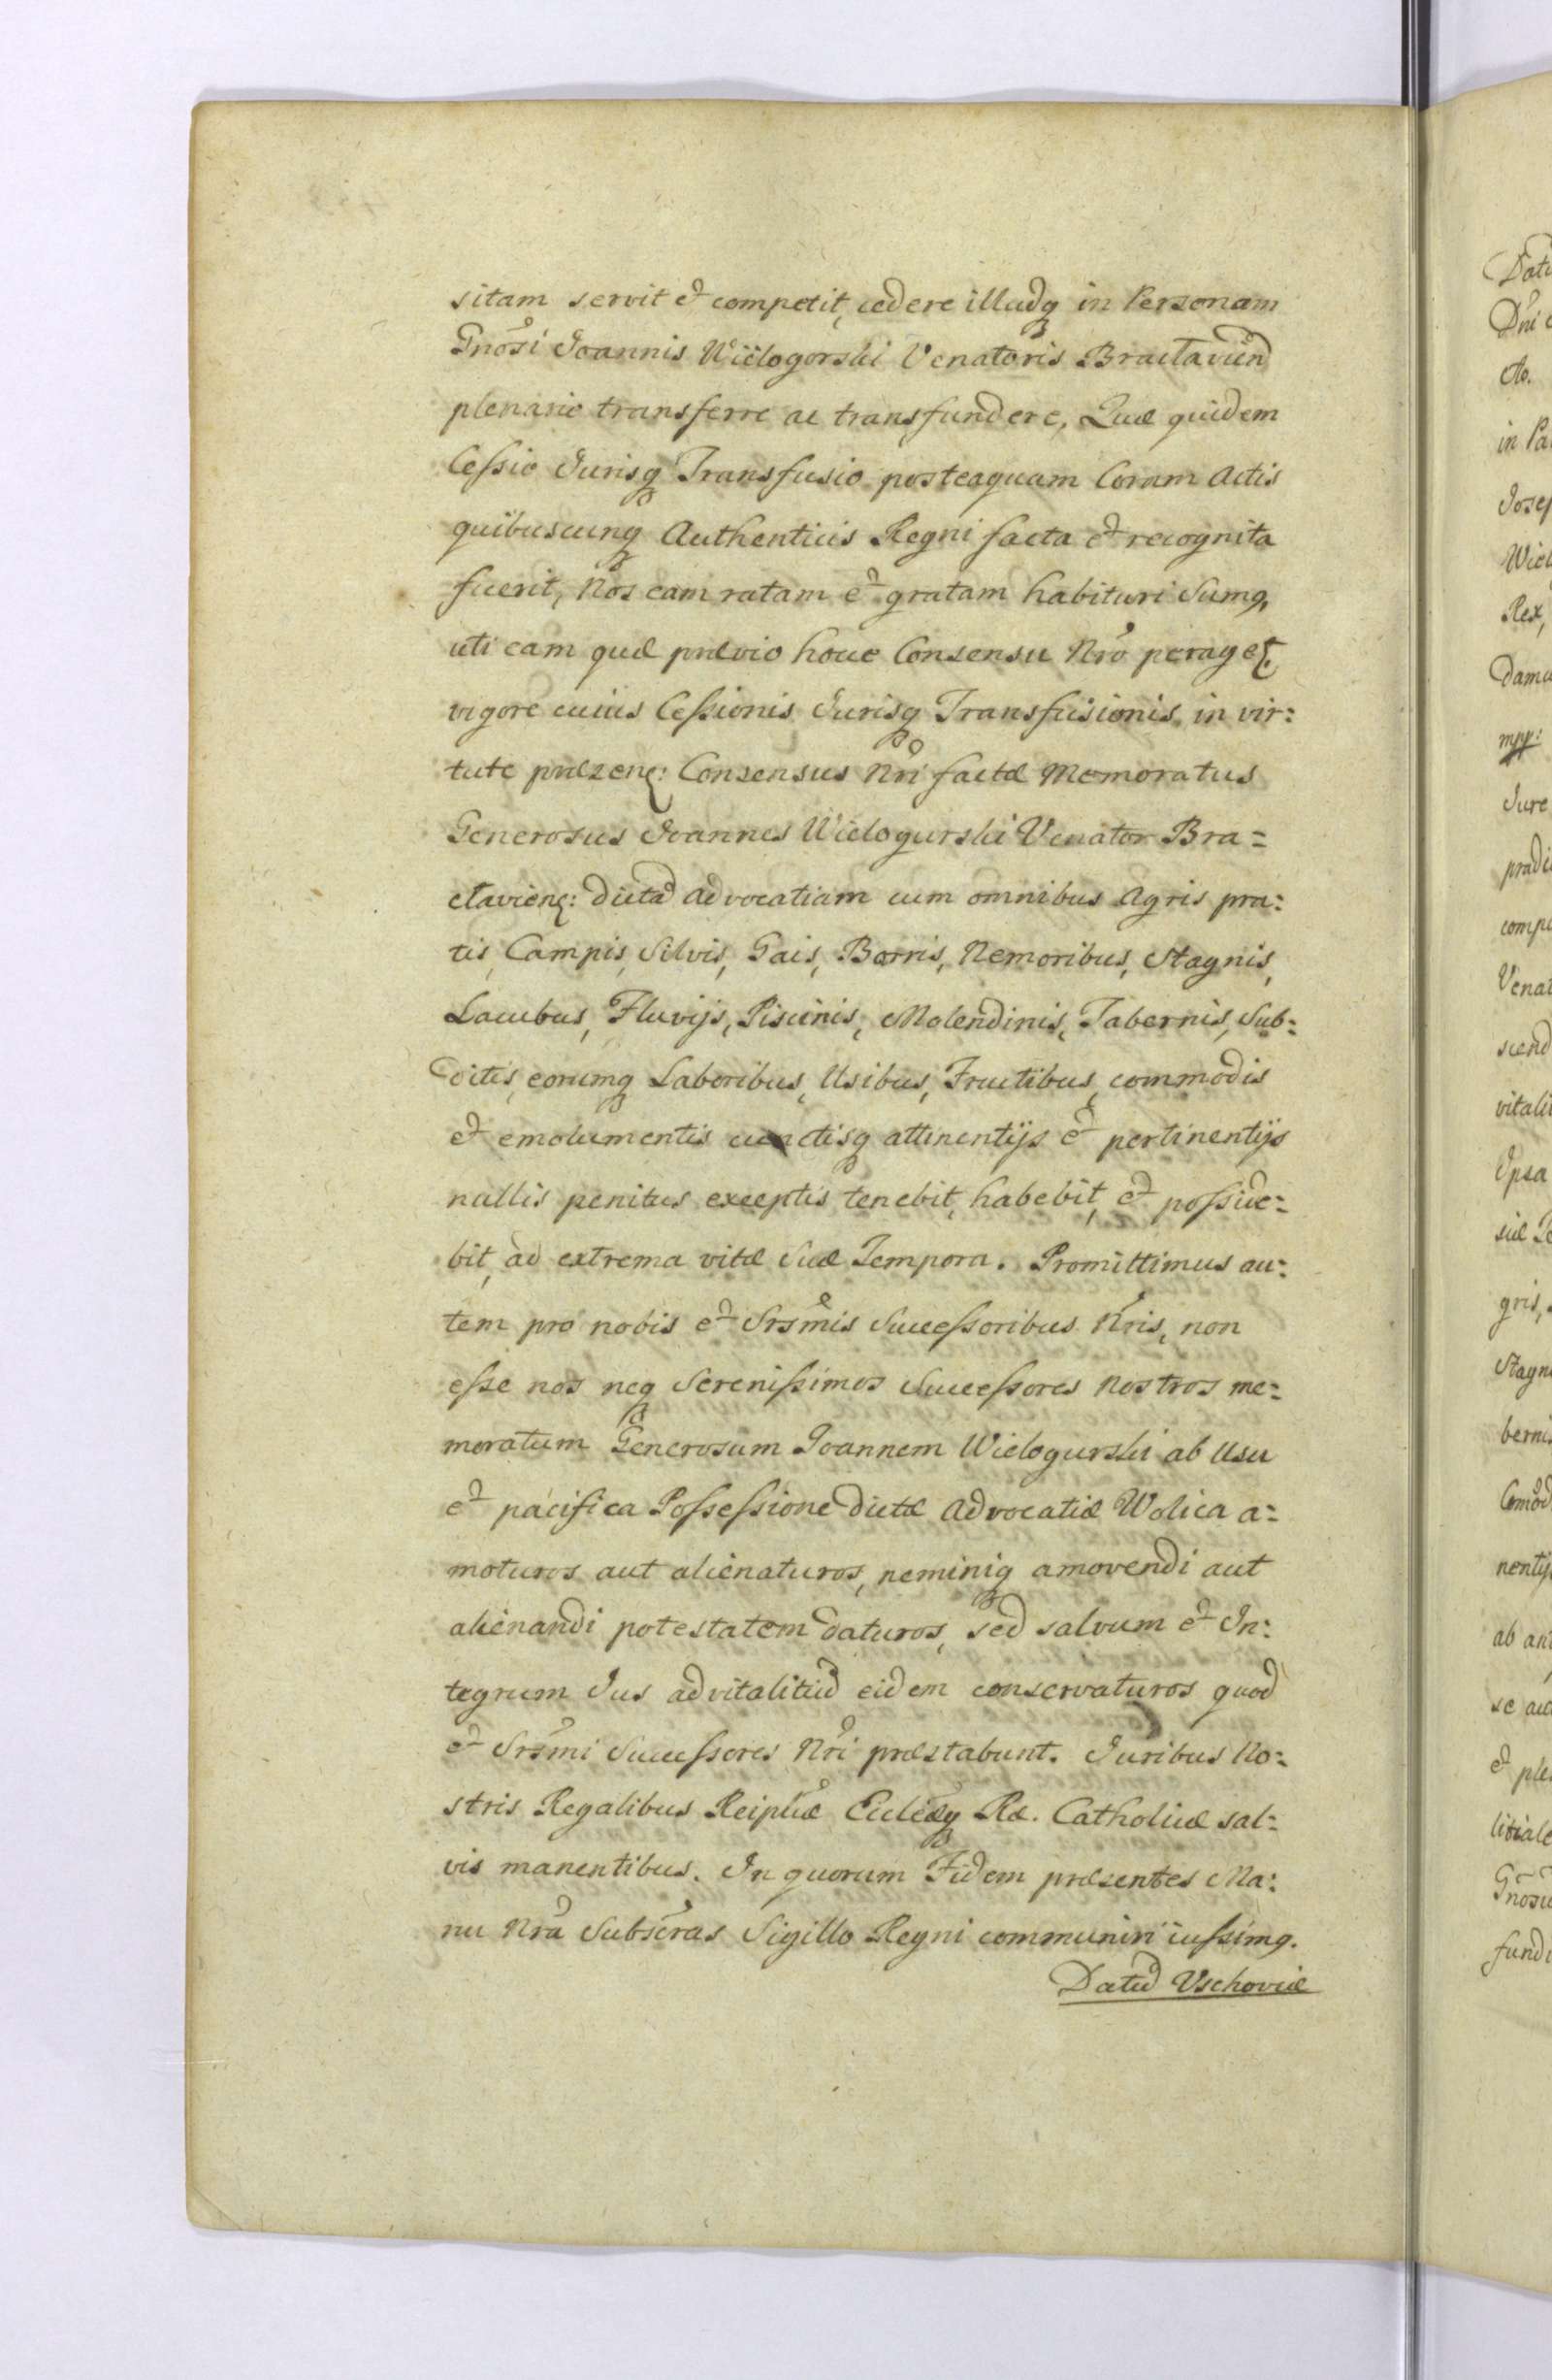 sitam servit et competit, cedere illudq in Personam
Gnosi Joannis Wielogorski Venatoris Braclavien
plenarie transferre ac transfundere, Quæ quidem
Cessio Jurisq Transfusio posteaquam Coram Actis
quibuscunq Authenticis Regni facta et recognita
fuerit, Nos eam ratam et gratam habituri Sumq,
uti eam quæ prævio hocce Consensu Nro peraget
vigore cuius Cessionis Jurisq Transfusionis in vir:
tute præsen: Consensus Nri factæ Memoratus
Generosus Joannes Wielogurski Venator Bra=
clavien: dictã advocatiam cum omnibus Agris pra:
tis, Campis, Silvis, Gais, Borris, Nemoribus, Stagnis,
Lacubus, Fluvijs, Piscinis, Molendinis, Tabernis, Sub:
ditis, eorumq Laboribus, Usibus, Fructibus, commodis
et emolumentis cunctisq attinentijs et pertinentijs
nullis penitus exceptis tenebit, habebit, et posside:
bit, ad extrema vitæ Suæ Tempora. Promittimus au:
tem pro nobis et Srsmis Successoribus Nris, non
esse nos neq Serenissimos Successores Nostros me:
moratum Generosum Joannem Wielogurski ab Usu
et pacifica Possessione dictæ Advocatiæ Wolica a:
moturos aut alienaturos, neminiq amovendi aut
alienandi potestatem daturos, sed salvum et In:
tegrum Jus advitalitiũ eidem conservaturos quod
et Srsmi Successores Nri præstabunt. Juribus No:
stris Regalibus Reiplicæ Eccleæq Ræ. Catholicæ sal:
vis manentibus. In quorum Fidem præsentes Ma:
nu Nra Subscras Sigillo Regni communiri iussimq.
Datũ Vschoviæ